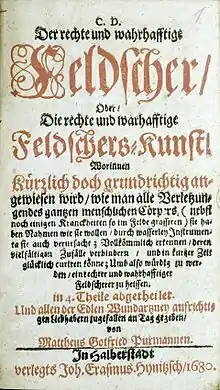 C. D.
Der rechte und wahrhafftige
Feldscher/
Oder/
Die rechte und warhafftige
Feldschers-Kunst/
Worinnen
Kürtzlich doch grundrichtig an-
gewiesen wird/ wie man alle Verletzun-
gen des gantzen menschlichen Cörpers, (nebst
noch einigen Kranckheiten so im Felde grassiren) sie ha-
ben Nahmen wie sie wollen/ durch wasserley Instrumen-
ta sie auch verursacht; Vollkömmlich erkennen/ deren
vielfältigen Zufälle verhindern/ und in kurtzer Zeit
glücklich curiren könne; Und also würdig zu wer-
den/ ein rechter und wahrhafftiger
Feldscherer zu heissen.
in 4. Theile abgetheilet.
Und allen der Edlen Wundartzney aufrichti-
gen Liebhabern zugefallen an Tag gegeben/
von
Mattheus Gotfried Purmannen.
In Halberstadt
verlegts Joh. Erasmus Hynitzsch/ 1680.